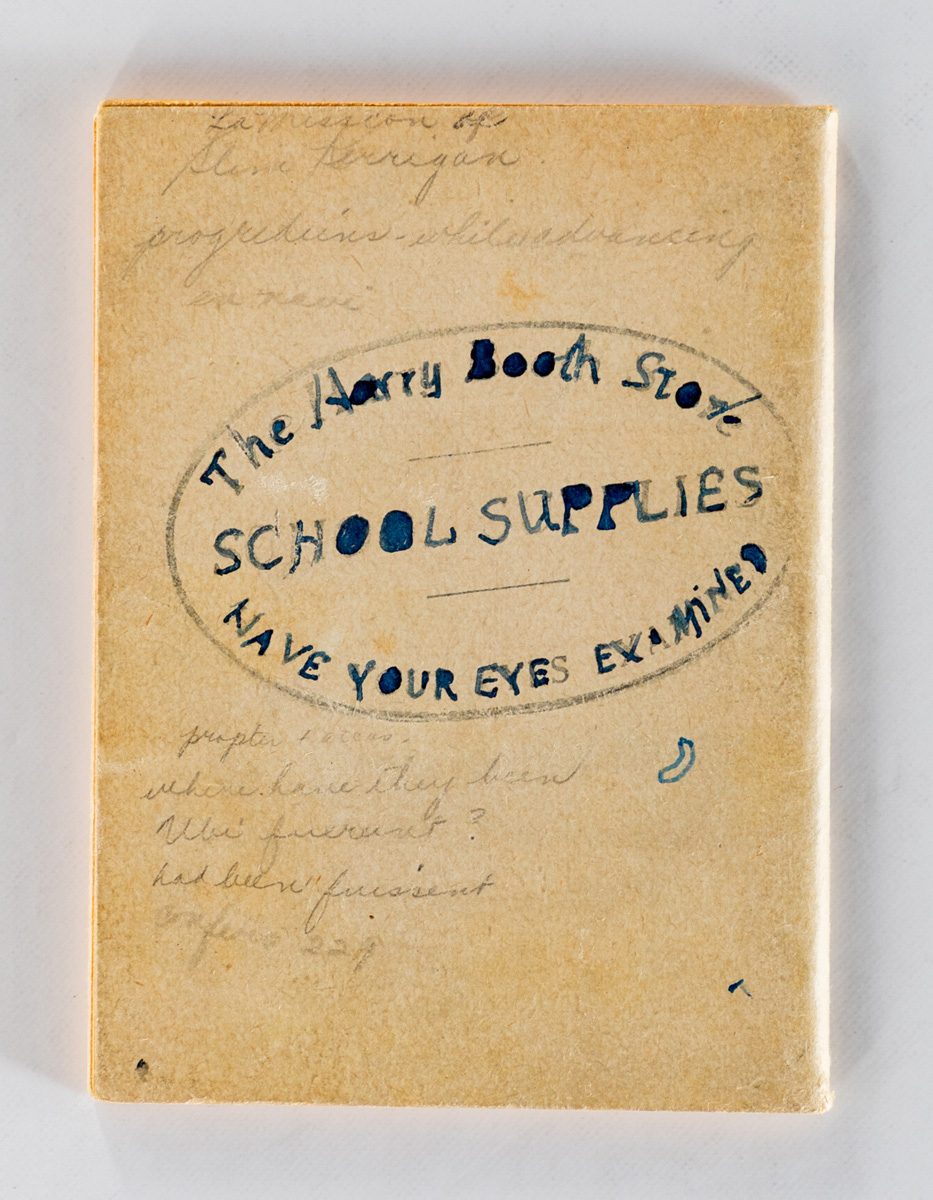 La Mission of
Kerrigan
progrediens - while advancing
en navi
The Harry Booth Store
SCHOOL SUPPLIES
HAVE YOUR EYES EXAMINED
propter
where have they been
Ubi fuerunt ?
had been fuissent
229